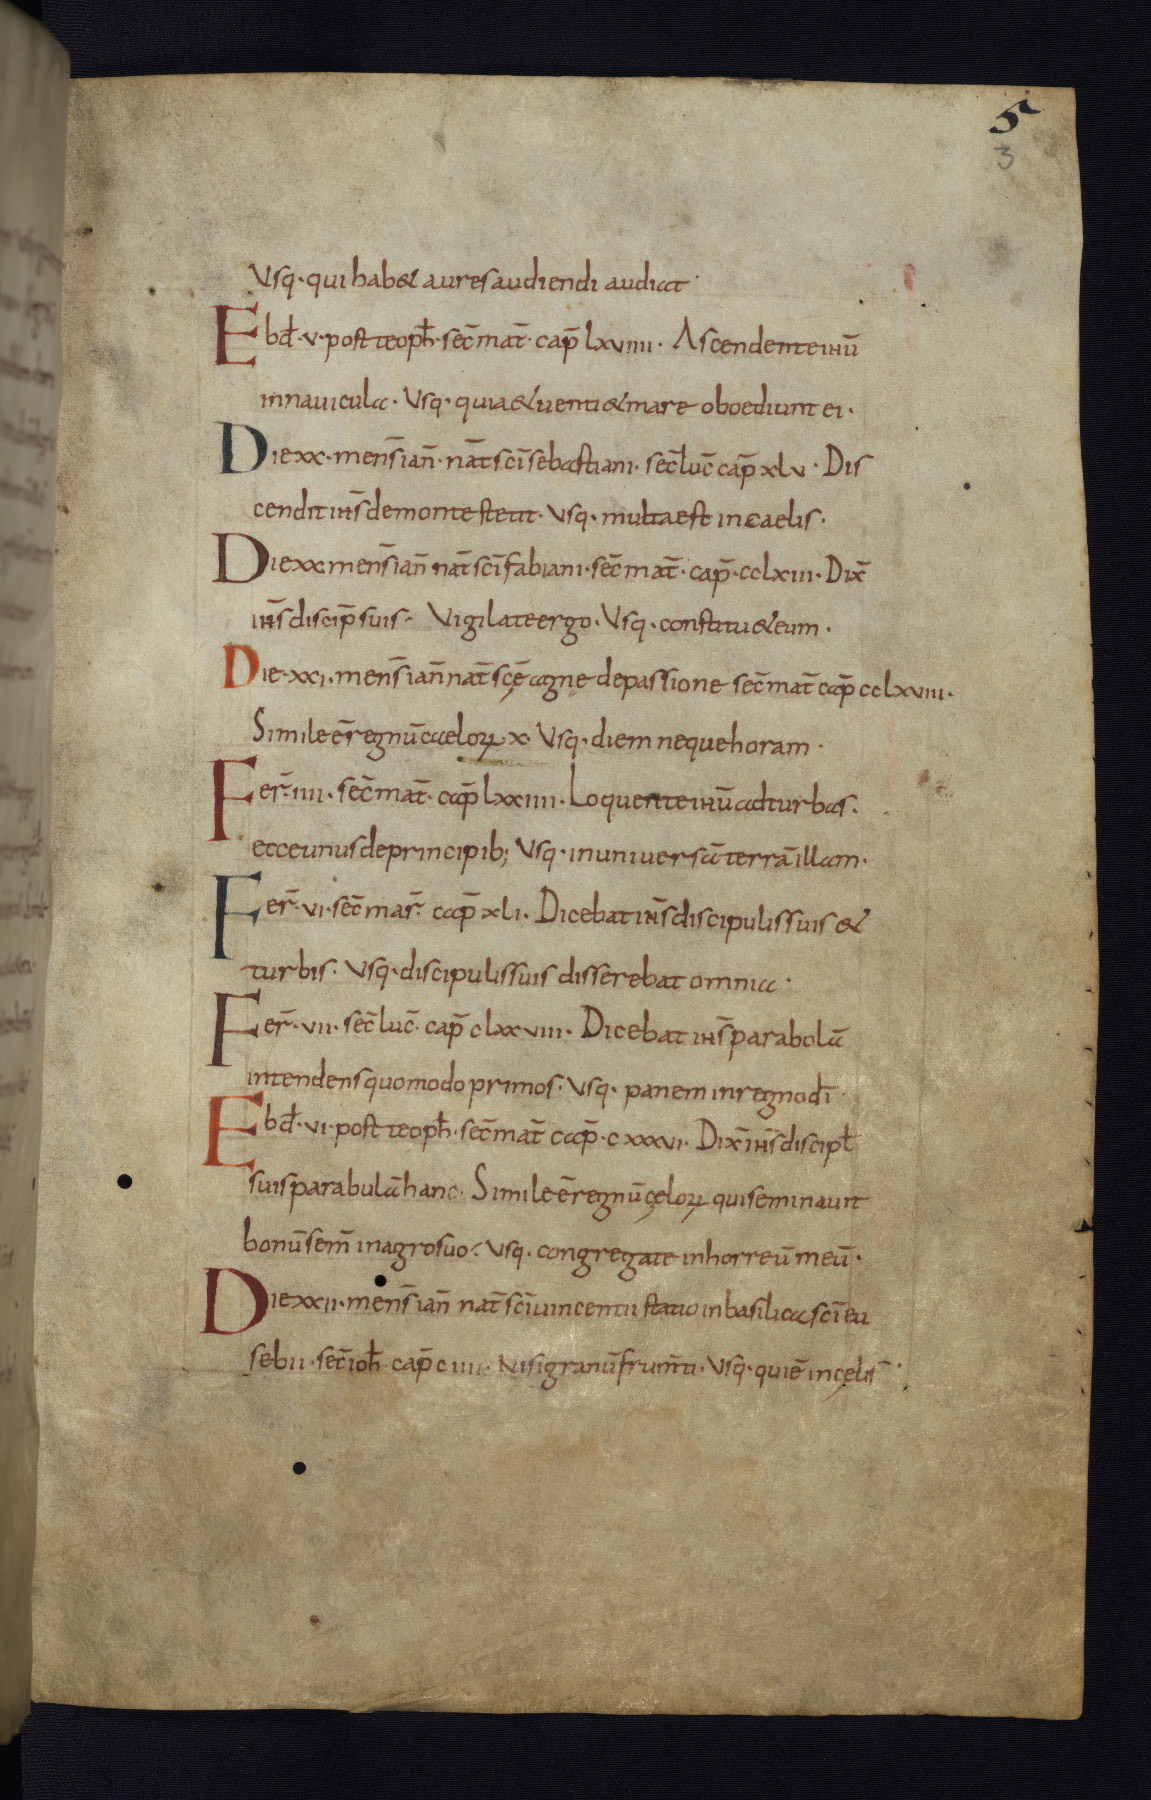 5
3
Vsq· qui hab& aures audiendi audiat·
Ebđ·v·post teoph̄·sec̄ mat̄· cap̄ lxviiii· Ascendente ihū
in navicula· Vsq· quia & venti & mare oboediunt ei·
Die xx· mens̄ ian̄· nat̄ sc̄i sebastiani· sec̄ luc̄ cap̄ xlv· Dis
cendit ih̄s de monte stetit· Vsq· multa est in caelis·
Die xx mens̄ ian̄ nat̄ sc̄i fabiani· sec̄ mat̄· cap̄· cclxiii· Dix̄
ih̄s discip̄ suis· Vigilate ergo· Vsq· constitu& eum·
Die·xxi· mens̄ ian̄ nat̄ sc̄ę agnę de passione sec̄ mat̄ cap̄ cclxviii·
Simile ē regnū caeloꝝ x· Vsq· diem neque horam·
Fer̄· iiii· sec̄ mat̄· cap̄ lxxiiii· Loquente ihū ad turbas·
ecce unus de principib; Vsq· in universā terrā illam·
Fer̄· vi· sec̄ mar̄· cap̄ xli· Dicebat ih̄s discipulis suis &
turbis· Vsq· discipulis suis disserebat omnia·
Fer̄· vii· sec̄ luc̄· cap̄ clxxviii· Dicebat ih̄s parabolā
intendens quomodo primos· Vsq· panem in regno dī
Ebđ·vi·post teoph̄·sec̄ mat̄ cap̄·cxxxvi· Dix̄ ih̄s discipł
suis parabulā hanc· Simile ē regnū cęloꝝ qui seminavit
bonū sem̄ in agro suo· Vsq· congregate in horreū meū·
Die xxii· mens̄ ian̄ nat̄ sc̄i vincentii statio in basilica sc̄i eu
sebii· sec̄ ioh̄· cap̄ ciiii· Nisi granū frum̄ti· Vsq· qui ē in cęlis·